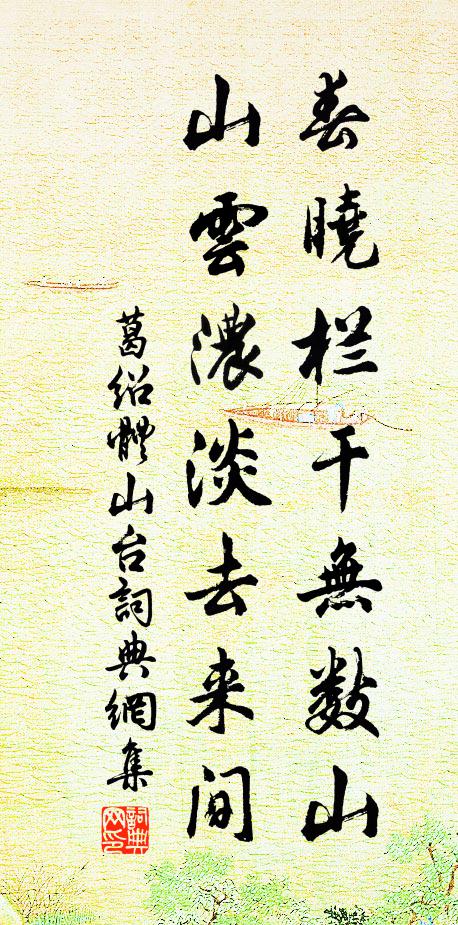 春曉栏干無数山
山雲濃淡去来间
葛绍體山台詞典網集
詞典网印